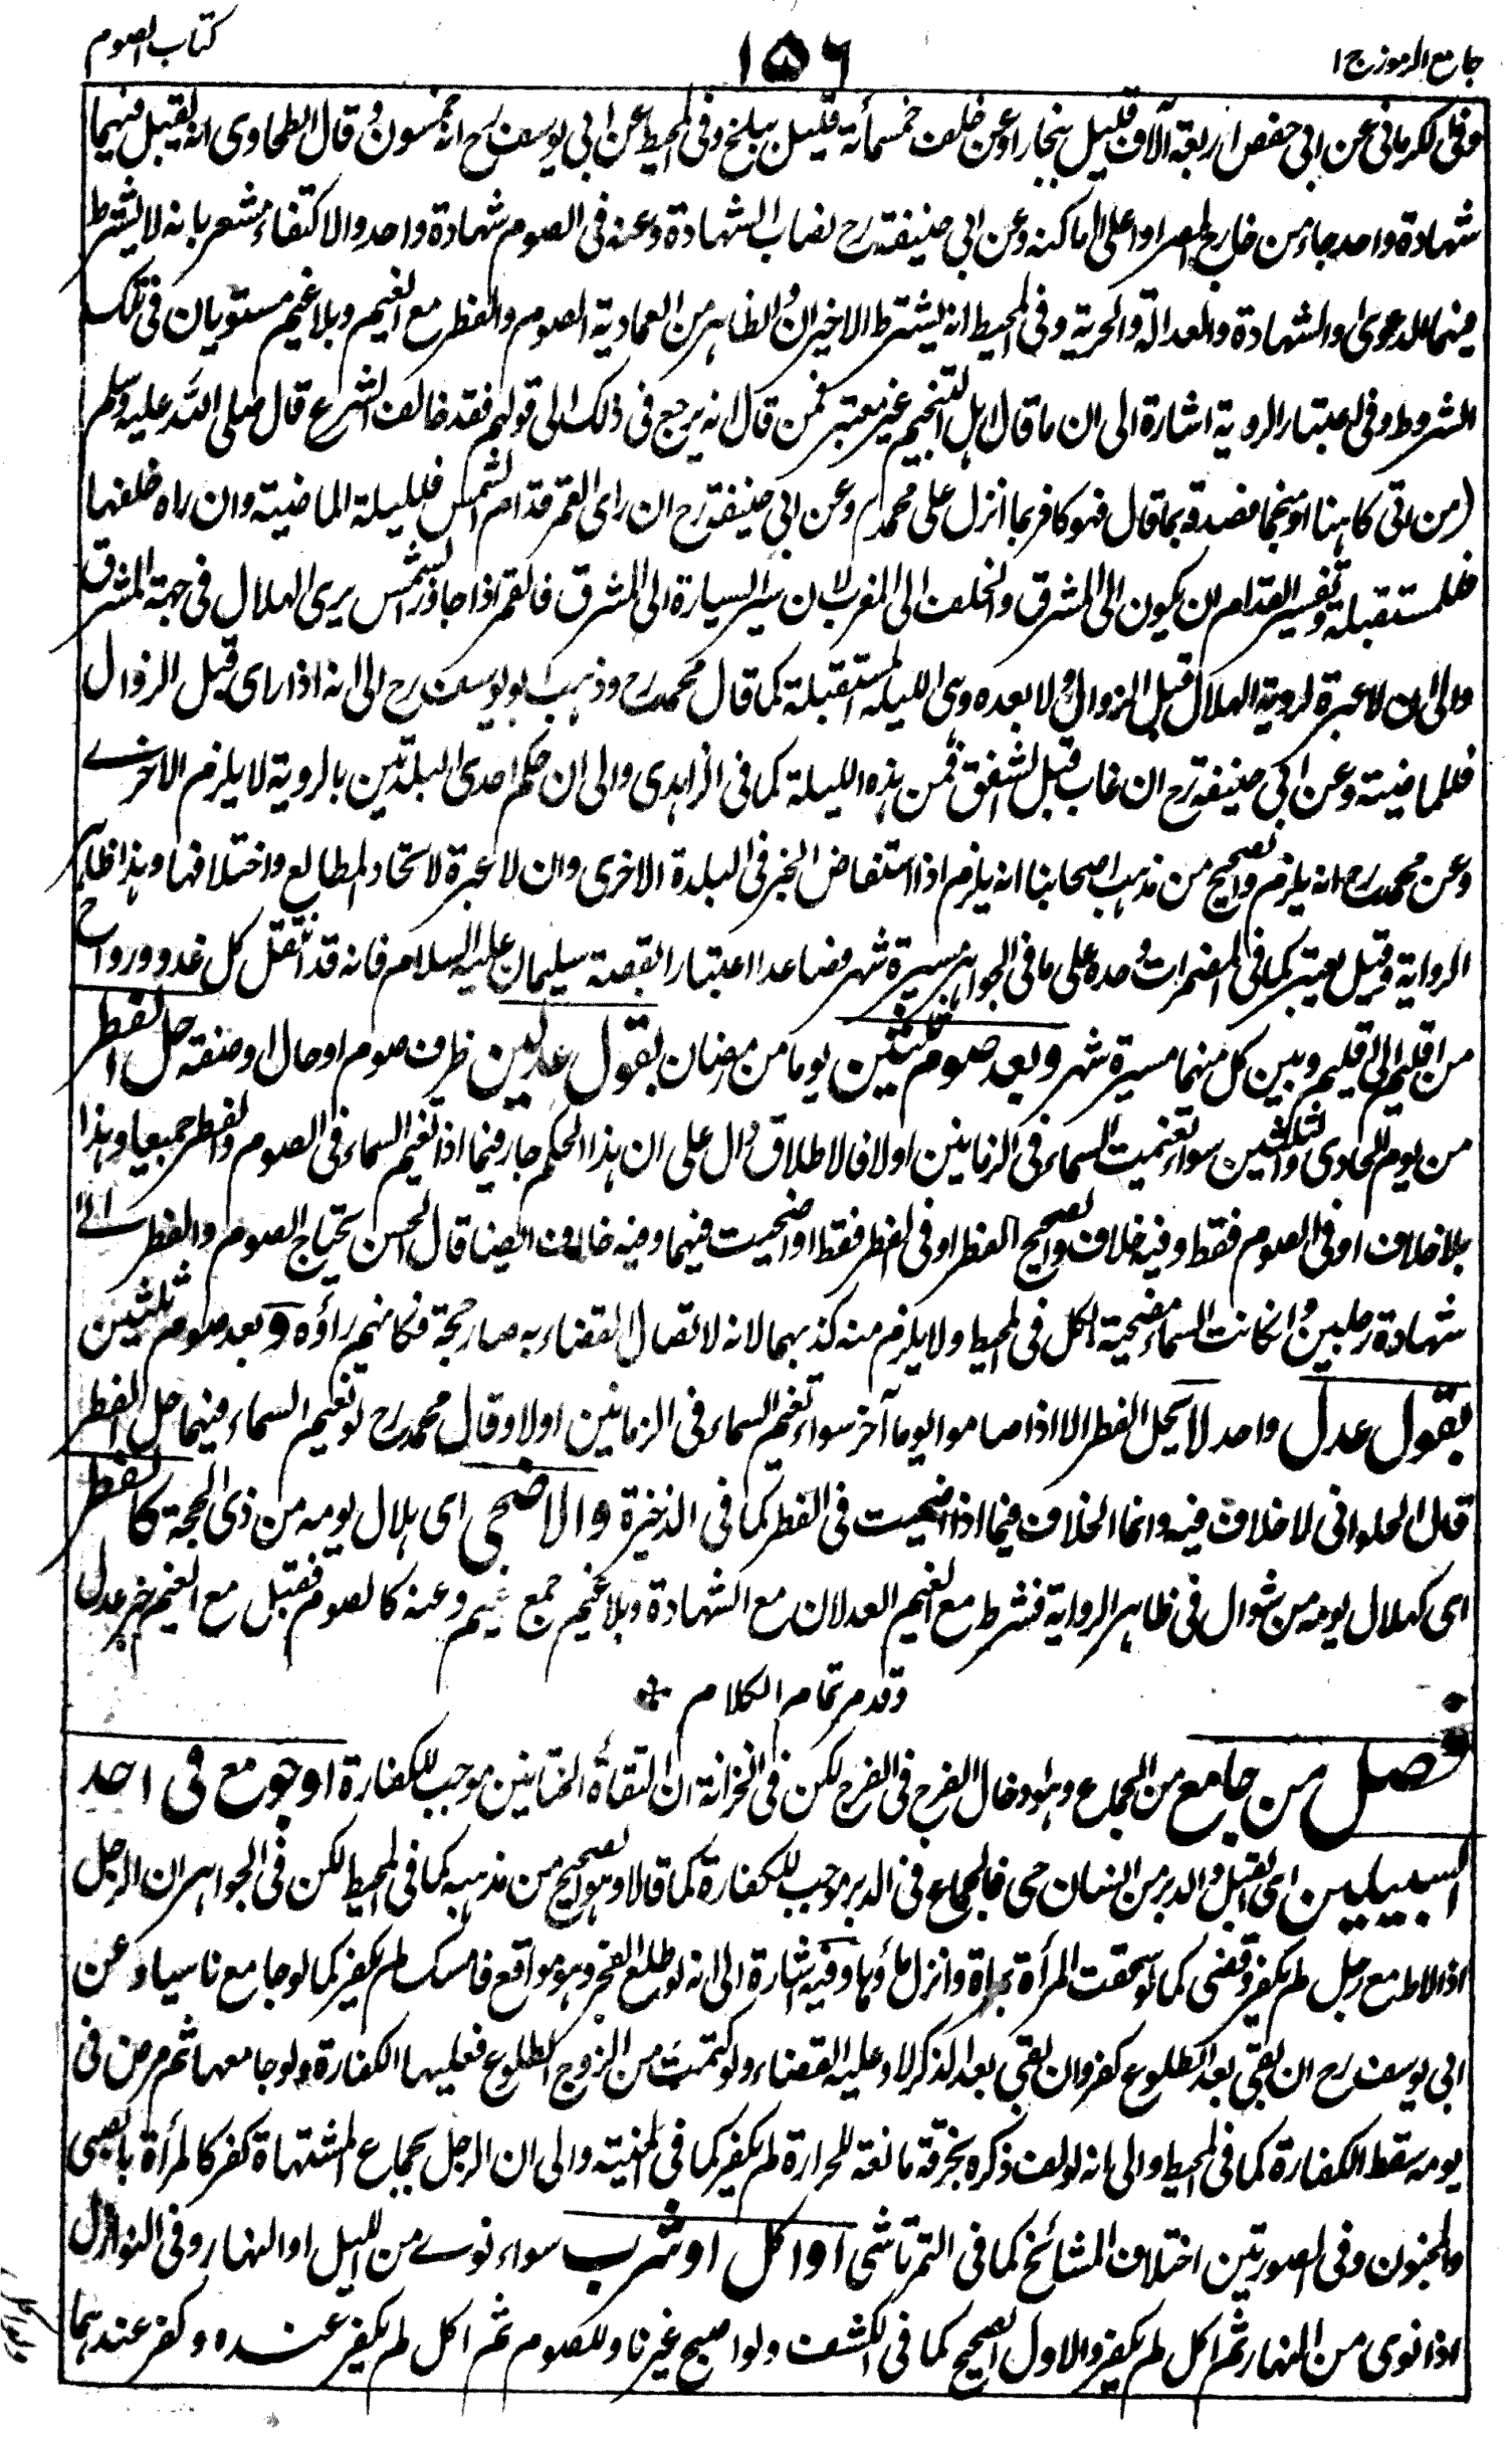 جامع الرموز ج ۱
۱۵۶
كتاب الصوم
وفى الكرمانى عن ابى حفص اربعة آلاف قليل ببخارا وعن خلف خمسمأة قليل ببلخ وفى المحيط عن ابى يوسف رح انه خمسون وقال الطحاوى انه يقبل فيهما
شهادة واحد جاء من خارج المصر او اعلى الاماكنه وعن ابى حنيفة رح نصاب الشهادة وعنه فى الصوم شهادة واحد والاكتفاء مشعر بانه لا يشترط
فيهما الدعوى والشهادة والعدالة والحرية وفى المحيط انه يشترط الاخيران والظاهر من العمادية الصوم والفطر مع الغيم وبلا غيم مستويان فى تلك
الشروط وفى اعتبار الروية اشارة الى ان ما قال اهل التنجيم غير معتبر فمن قال انه يرجع فى ذلك الى قولهم فقد خالف الشرع قال صلى الله عليه وسلم
(من اتى كاهنا او منجما فصدقه بما قال فهو كافر بما انزل على محمد م وعن ابى حنيفة رح ان راى القمر قدام الشمس فلليلة الماضية وان راه خلفها
فللمستقبلة وتفسير القدام ان يكون الى المشرق والخلف الى المغرب لان سير السيارة الى المشرق فالقمر اذا جاوز الشمس يرى الهلال فى جهة المشرق
والى ان لا عبرة لروية الهلال قبل الزوال ولا بعده وهى الليلة المستقبلة كما قال محمد رح وذهب ابو يوسف رح الى انه اذا راى قبل الزوال
فللماضية وعن ابى حنيفة رح ان غاب قبل الشفق فمن هذه الليلة كما فى الزاهدى والى ان حكم احدى البلدتين بالروية لا يلزم الاخرے
وعن محمد رح انه يلزم والصحيح من مذهب اصحابنا انه يلزم اذا استفاض الخبر فى البلدة الاخرى وان لا عبرة لاتحاد المطالع واختلافها وهذا ظاهر
الرواية وقيل يعتبر كما فى المضمرات وحده على ما فى الجواهر مسيرة شهر فصاعدا اعتبارا بقصة سليمان عليه السلام فانه قد انتقل كل غدو ورواح
من اقليم الى اقليم وبين كل منهما مسيرة شهر وبعد صوم ثلثين يوما من رمضان بقول عدلين ظرف صوم او حال او صفته حل الفطر
من يوم الحادى والثلثين سواء تغيمت السماء فى الزمانين اولا فالاطلاق دال على ان هذا الحكم جار فيما اذا تغيم السماء فى الصوم والفطر جميعا وهذا
بلا خلاف او فى الصوم فقط وفيه خلاف والصحيح الفطر او فى الفطر فقط او اضحيت فيهما وفيه خلاف ايضا قال الحسن يحتاج الصوم والفطر الے
شهادة رجلين وان كانت السماء مضحية الكل فى المحيط ولا يلزم منه كذبهما لانه لاتصال القضاء به صار حجة فكانهم راؤه و بعد صوم ثلثين
بقول عدل واحد لا يحل الفطر الا اذا صاموا يوما آخر سواء تغيم السماء فى الزمانين اولا وقال محمد رح لو تغيم السماء فيهما حل الفطر
قال الحلوانى لا خلاف فيه وانما الخلاف فيما اذا اضحيت فى الفطر كما فى الذخيرة والاضحى اى هلال يومه من ذى الحجة كالفطر
اى كهلال يومه من شوال فى ظاهر الرواية فشرط مع الغيم العدلان مع الشهادة وبلا غيم جمع غيم وعنه كالصوم فقبل مع الغيم خبر عدل
وقد مر تمام الكلام
فصل من جامع من الجماع وهو ادخال الفرج فى الفرج لكن فى الخزانة ان التقاء الختانين موجب للكفارة او جومع فى احد
السبيلين اى القبل والدبر من انسان حى فالجماع فى الدبر موجب للكفارة كما قالا وهو الصحيح من مذهبه كما فى المحيط لكن فى الجواهر ان الرجل
اذا لاط مع رجل لم يكفر وقضى كما لو سحقت المرأة بمراة وانزل ماؤهما وفيه اشارة الى انه لو طلع الفجر وهو مواقع فامسك لم يكفر كما لو جامع ناسيا وعن
ابى يوسف رح ان بقى بعد الطلوع كفر وان بقى بعد الذكر لا وعليه القضاء ولو كتمت من الزوج الطلوع فعليها الكفارة ولو جامعها ثم مرض فى
يومه سقط الكفارة كما فى المحيط والى انه لو لف ذكره بخرقة مانعة للحرارة لم يكفر كما فى المنية والى ان الرجل بجماع المشتهاة كفر كالمرأة بالصبى
والمجنون وفى الصورتين اختلاف المشائخ كما فى التمرتاشى او اكل او شرب سواء نوے من الليل او النهار وفى النوازل
اذا نوى من النهار ثم اكل لم يكفر والاول الصحيح كما فى الكشف ولو اصبح غير ناو للصوم ثم اكل لم يكفر عنده وكفر عندهما